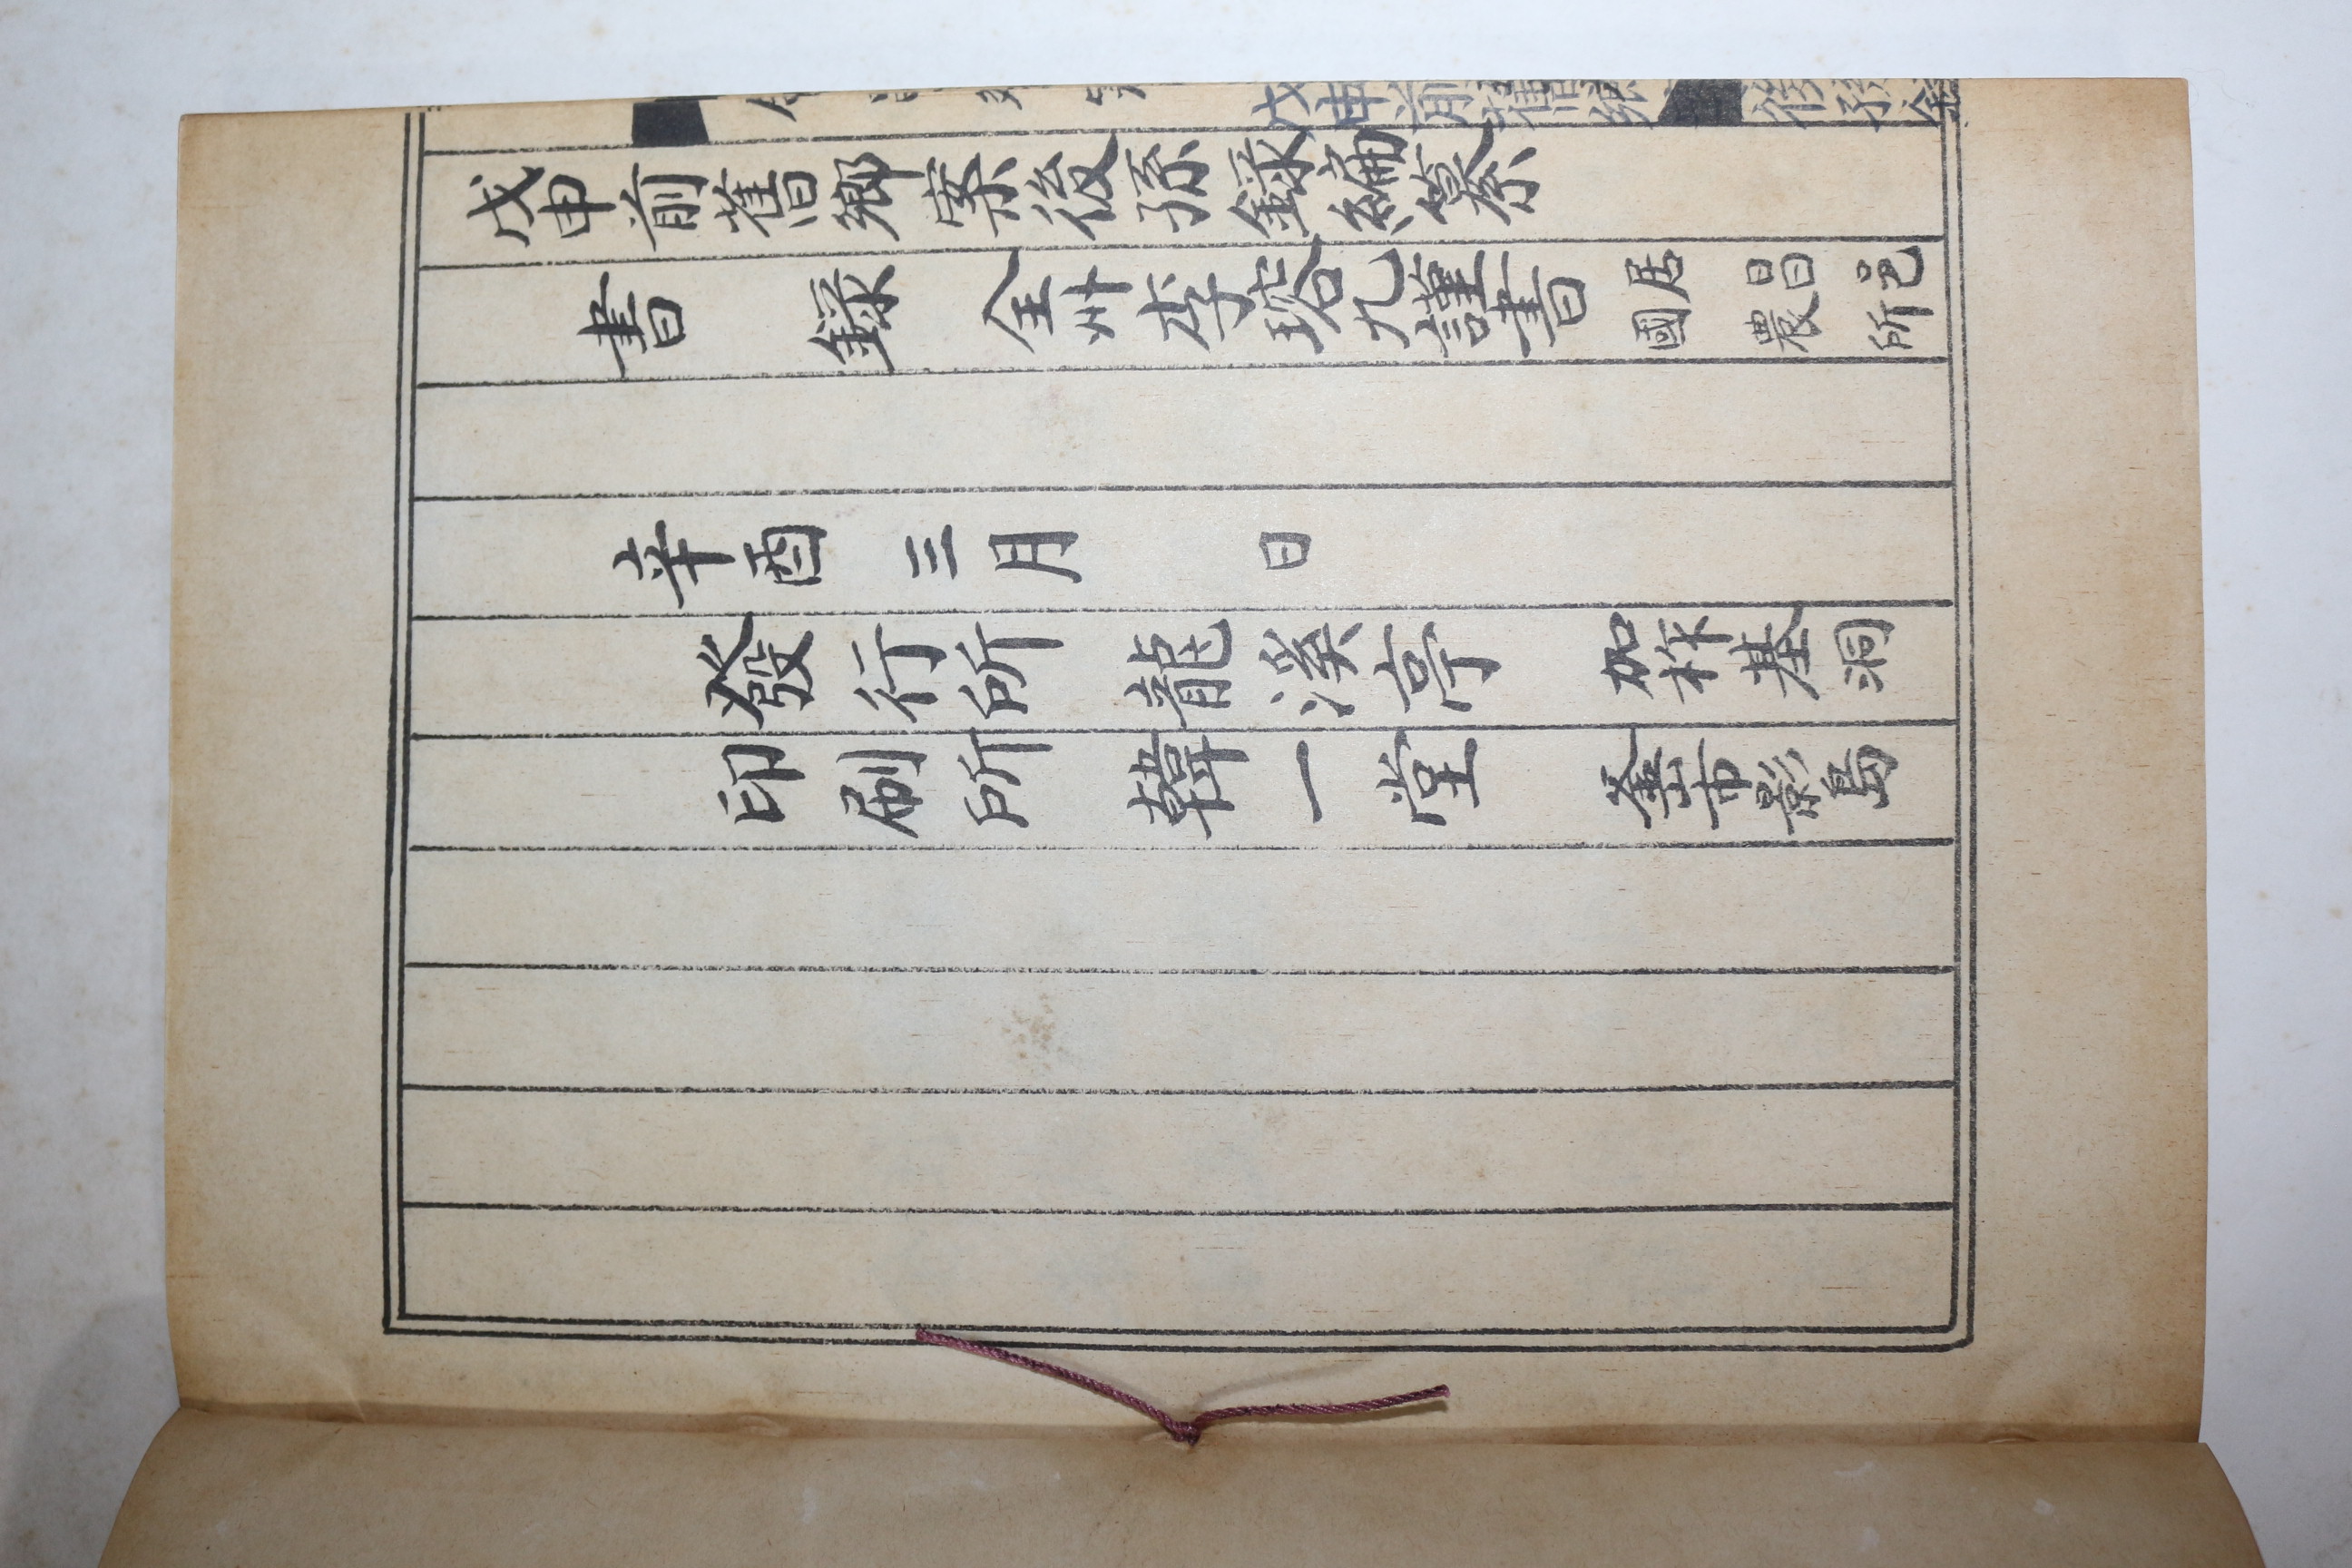 戊申前舊鄉案後孫錄編纂
書錄 全州李瑢九謹書 居昌邑
國農所
辛酉 三月 日
發行所 龍溪亭 加柞基洞
印刷所 韓一堂 釜山市影島
戊申前舊鄉
後孫錄